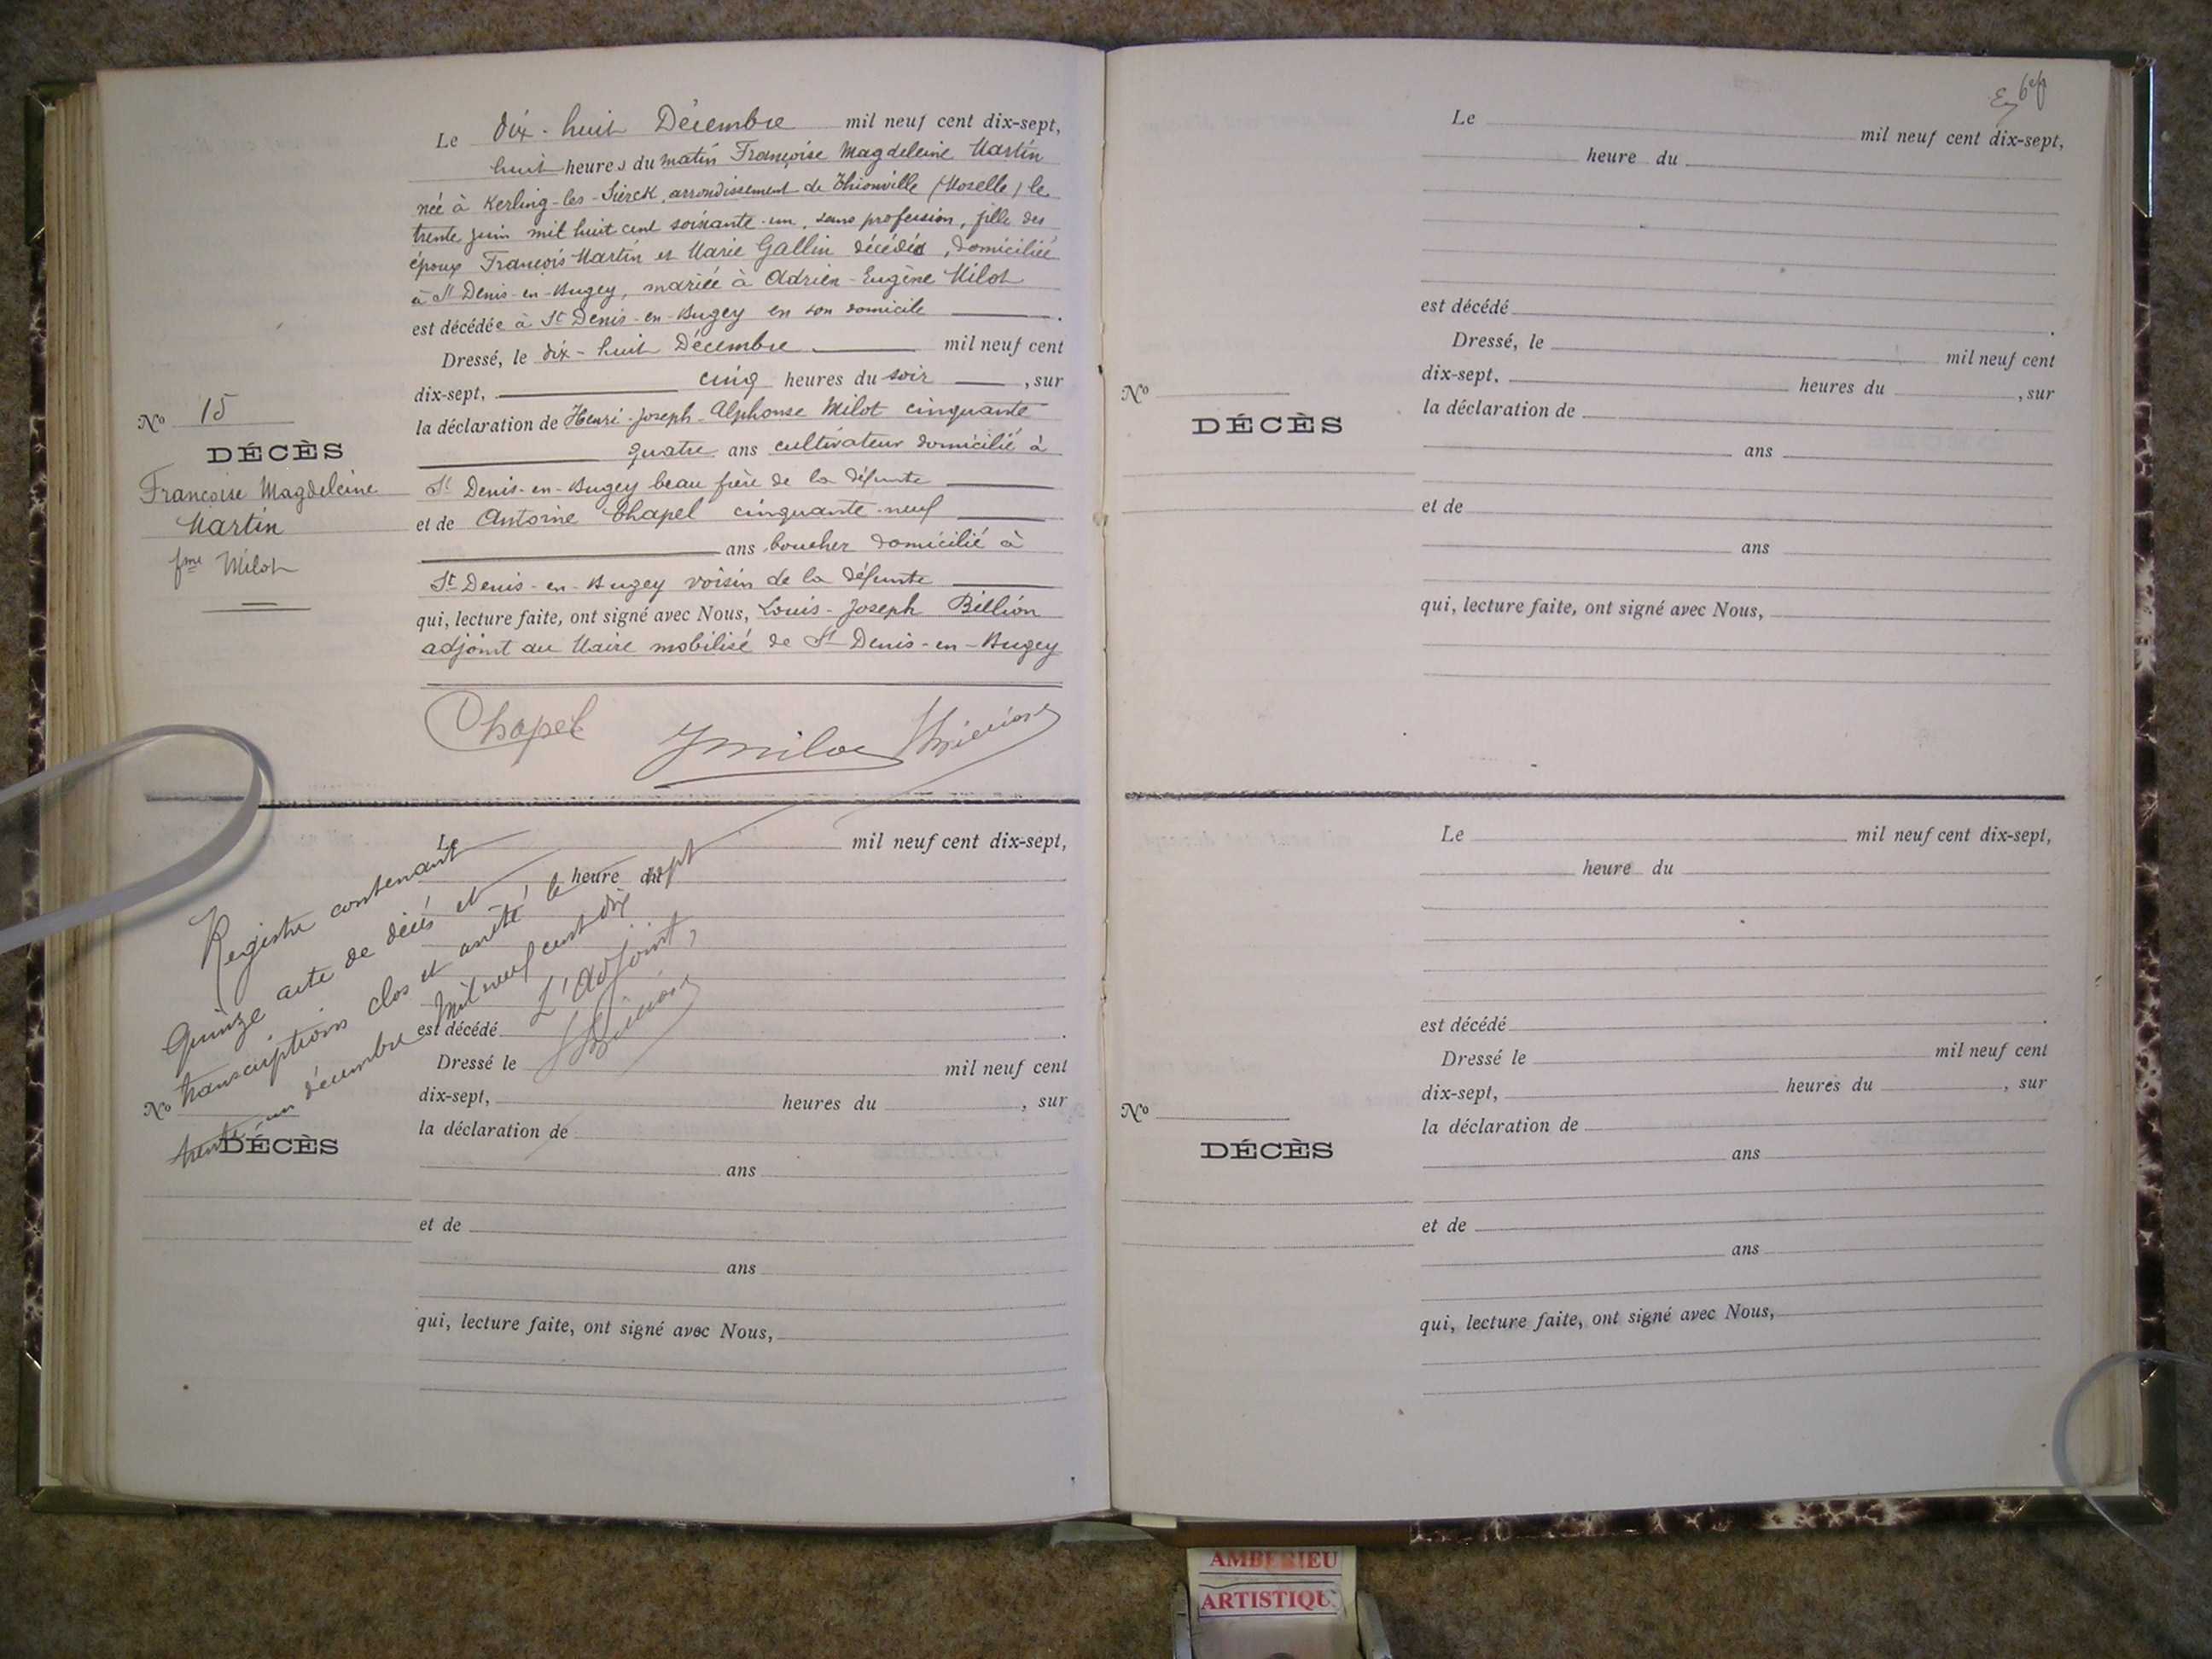 Le dix-huit Décembre mil neuf cent dix-sept,
huit heures du matin Françoise Magdeleine Martin
née à Kerling-les-Sierck, arrondissement de Thionville (Moselle) le
trente juin mil huit cent soixante-un, sans profession, fille des
époux François Martin et Marie Gallin décédés, domiciliée
à St Denis-en-Bugey, mariée à Adrien-Eugène Milot
est décédée à St Denis-en-Bugey en son domicile .
Dressé, le dix-huit Décembre mil neuf cent
dix-sept, cinq heures du soir , sur
la déclaration de Henri-Joseph-Alphonse Milot cinquante
quatre ans cultivateur domicilié à
St Denis-en-Bugey beau frère de la défunte
et de Antoine Chapel cinquante-neuf
ans boucher domicilié à
St Denis-en-Bugey voisin de la défunte
qui, lecture faite, ont signé avec Nous, Louis-Joseph Billion
adjoint au Maire mobilisé de St Denis-en-Bugey
Chapel Jmilot
No 15
DÉCÈS
Françoise Magdeleine
Martin
fme Milot
Le mil neuf cent dix-sept,
heure du
est décédé .
Dressé le mil neuf cent
dix-sept, heures du , sur
la déclaration de
ans
et de
ans
qui, lecture faite, ont signé avec Nous,
Registre contenant
quinze acte de décés et
transcriptions clos et arrêté le
trente-un décembre mil neuf cent dix sept
L'Adjoint,
No
DÉCÈS
Le mil neuf cent dix-sept,
heure du
est décédé .
Dressé, le mil neuf cent
dix-sept, heures du , sur
la déclaration de
ans
et de
ans
qui, lecture faite, ont signé avec Nous,
No
DÉCÈS
Le mil neuf cent dix-sept,
heure du
est décédé .
Dressé le mil neuf cent
dix-sept, heures du , sur
la déclaration de
ans
et de
ans
qui, lecture faite, ont signé avec Nous,
No
DÉCÈS
AMBERIEU
ARTISTIQU